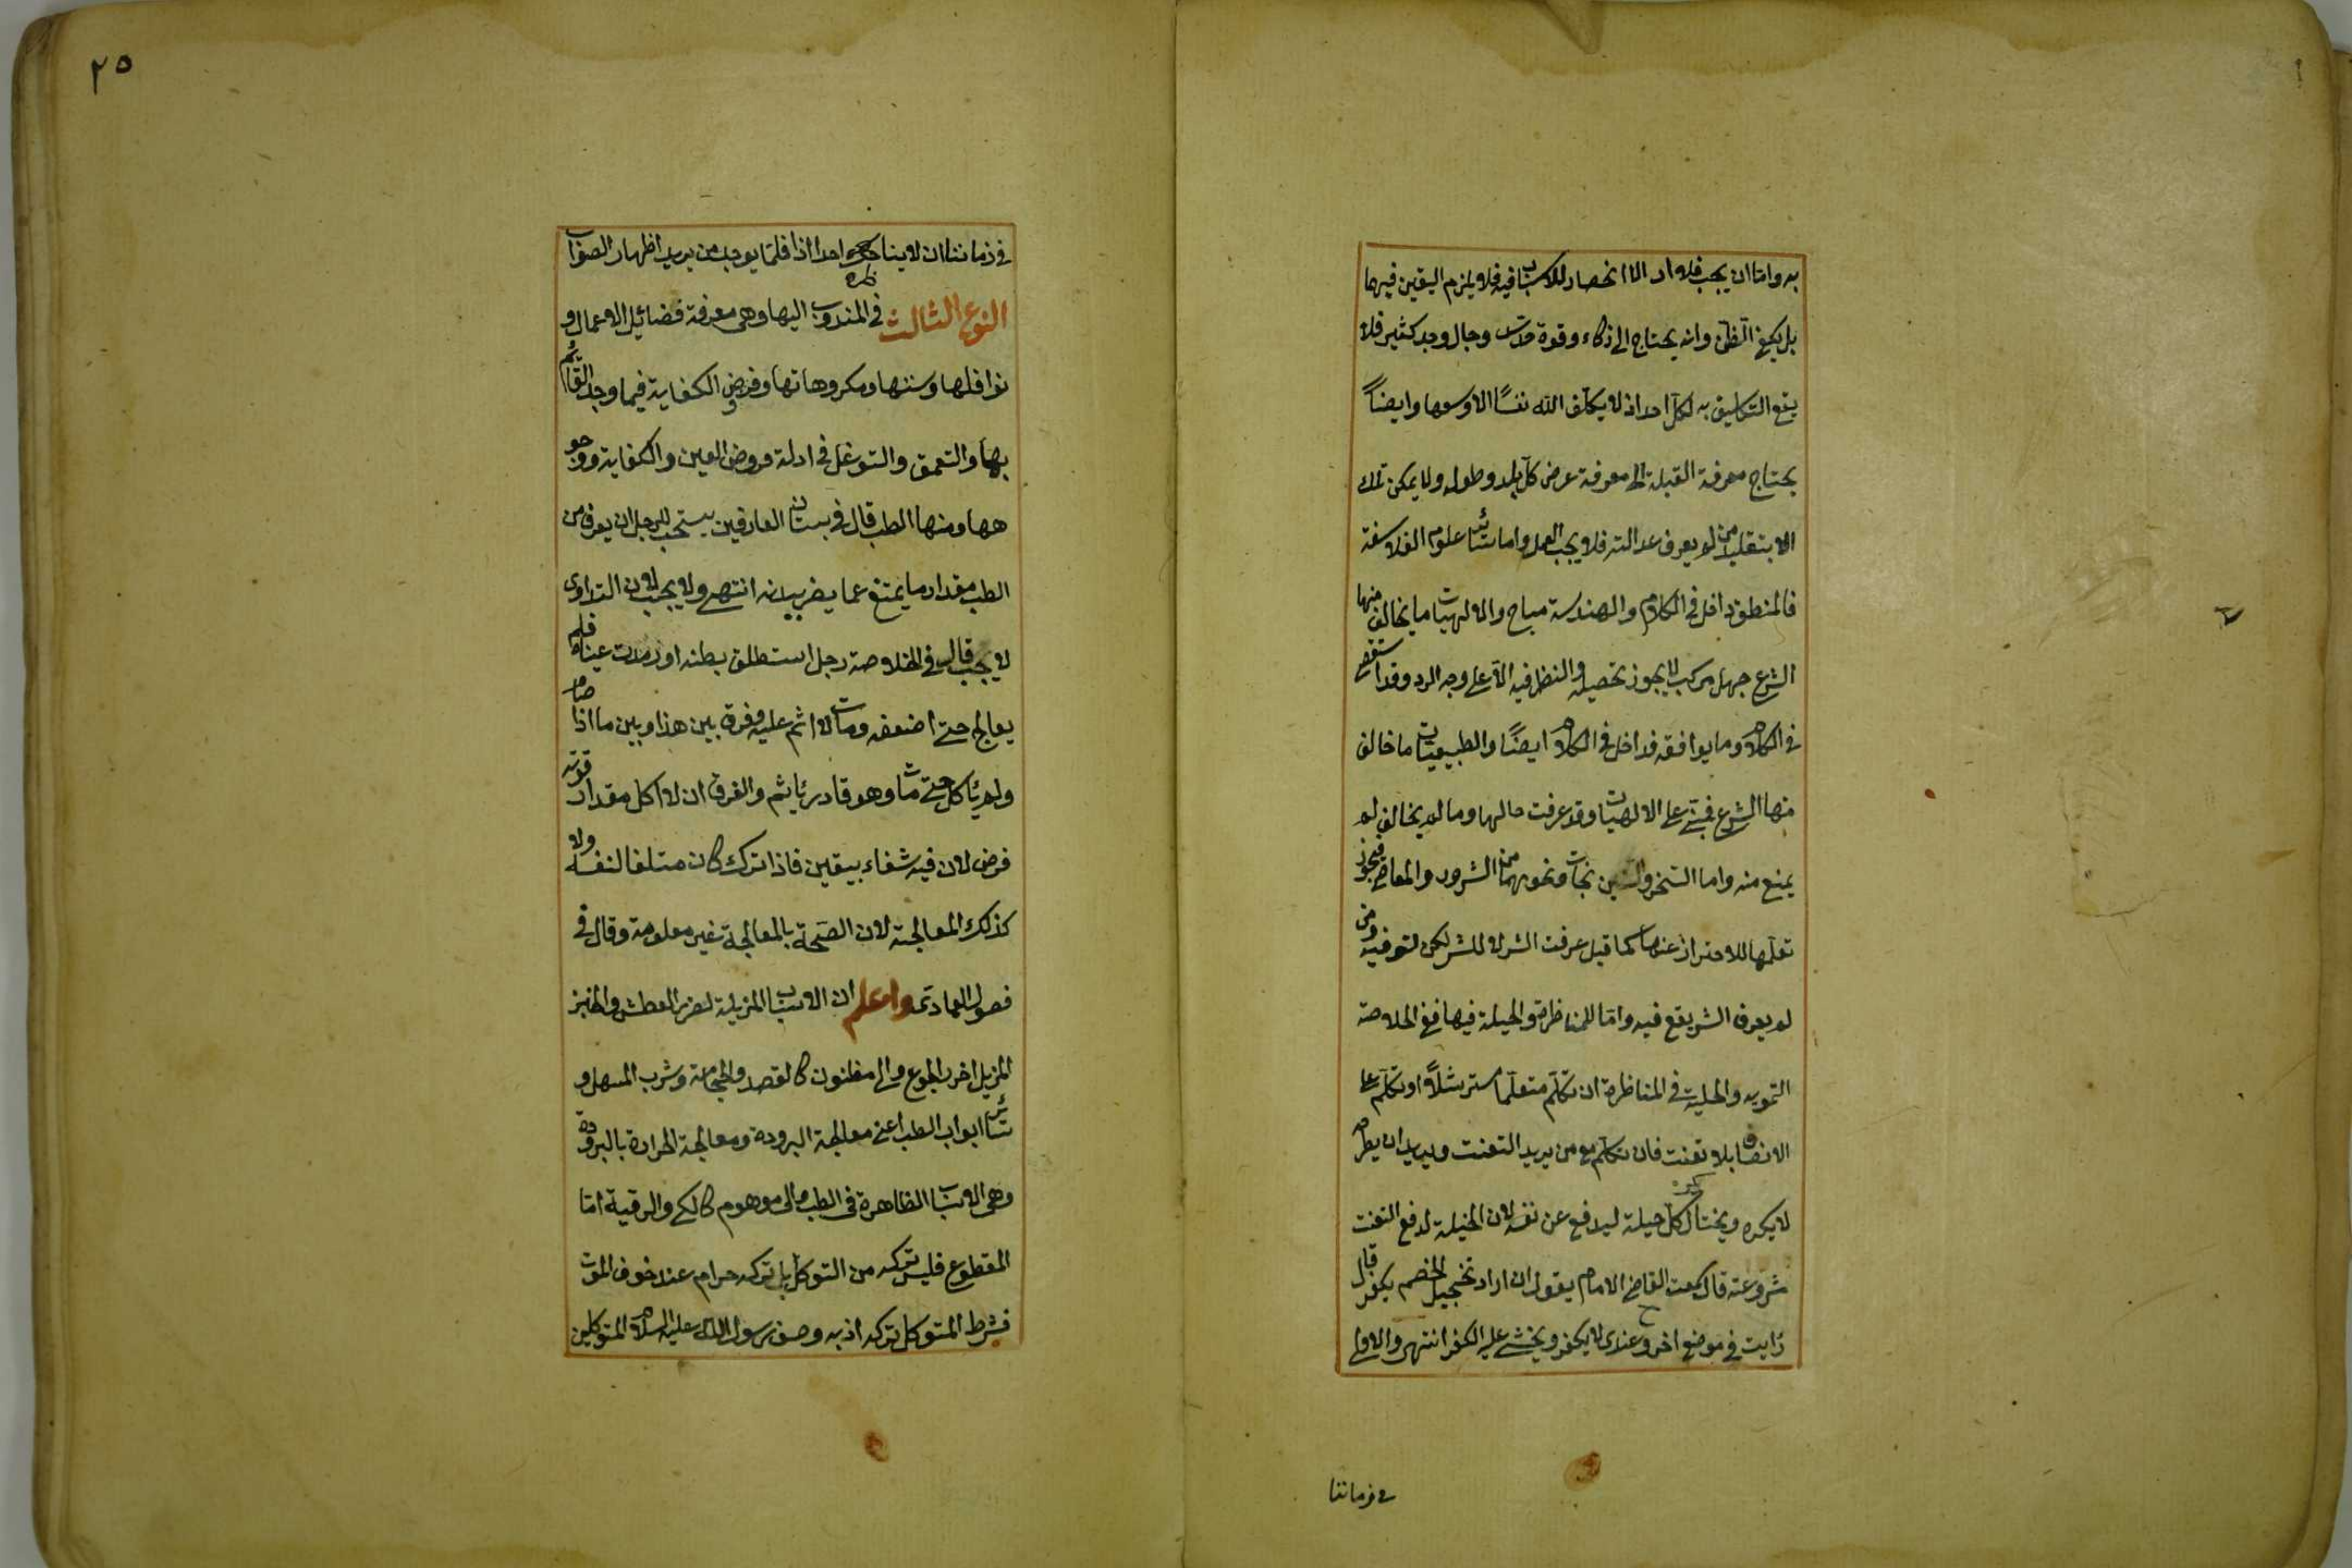 به واما ان يجب فلا اد الا انحصار للاسباب فيه فلا يلزم اليقين فيهما
بل يكفي الظن وانه يحتاج الى ذكاء وقوة حدس وجال وجد كثير فلا
يقع التكليف به لكل احد اذ لا يكلف الله نفسًا الا وسعها وايضًا
يحتاج معرفة القبلة الى معرفة عرض كل بلد وطوله ولا يمكن تلك
الا بتقليد من لم يعرف عدالته فلا يجب العمل واما سائر علوم الفلاسفة
فالمنطق داخل في الكلام والهندسة مباح والالهيات ما يخالف منها
الشرع جهل مركب لا يجوز تحصيله والنظر فيه الا على وجه الرد وقد استقص
في الكلام وما يوافقه فداخل في الكلام ايضًا والطبيعيات ما خالف
منها الشرع فبنى على الالهيات وقد عرفت حالها وما لم يخالف لم
يمنع منه واما السحر و نجات ونحوهما من الشرور والمعاصي فيجوز
تعلمها للاحتراز عنها كما قيل عرفت الشر لا للشر لكن لتوقيه ومن
لم يعرف الشر يقع فيه واما المناظرة والحيلة فيها ففي الخلاصة
التمويه والحيلة في المناظرة ان تكلم متعلما مسترشدًا او تكلم على
الانصاف بلا تعنت فان تكلم مع من يريد التعنت ويريد ان يطرحه
لا يكره ويحتال كل حيلة ليدفع عن نفسه لان الحيلة لدفع التعنت
مشروعة قال سمعت القاضي الامام يقول ان اراد تخجيل الخصم يكفر قال
رايت في موضع اخر وعندى لا يكفر ويخشى عليه الكفر انتهى والاولى
في زماننا
٢٥
في زماننا ان لا يناظره احدا اذ قلما يوجد من يريد اظهار الصواب
النوع الثالث في المندوب اليها وهي معرفة فضائل الاعمال و
نوافلها وسننها ومكروهاتها وفروض الكفاية فيما وجد القائم
بها والتعمق والتوغل في ادلة فروض العين والكفاية ووجو
هها ومنها الطب قال في بستان العارفين يستحب للرجل ان يعرف من
الطب مقدار ما يمتنع عما يضر ببدنه انتهى ولا يجب لان التداوى
لا يجب قال في الخلاصة رجل استطلق بطنه او رمدت عيناه فلم
يعالج حتى اضعفه ومات لا اثم عليه وفرق بين هذا وبين ما اذا صام
ولم يأكل حتى مات وهو قادر يأثم والفرق ان الاكل مقدار قوته
فرض لان فيه شفاء بيقين فاذا ترك كان متلفا لنفسه ولا
كذلك المعالجة لان الصحة بالمعالجة غير معلومة وقال في
فصول العمادى واعلم ان الاسباب المزيلة لضرر العطش والخبز
المزيل اضر الجوع والى مظنون كالفصد والحجامة وشرب المسهل و
سائر ابواب الطب اعنى معالجة البرودة ومعالجة الحرارة بالبرودة
وهى الاسباب الظاهرة في الطب والى موهوم كالكي والرقية اما
المقطوع فليس تركه من التوكل بل تركه حرام عند خوف الموت
فشرط المتوكل تركه اذ به وصف رسول الله عليه السلام المتوكلين